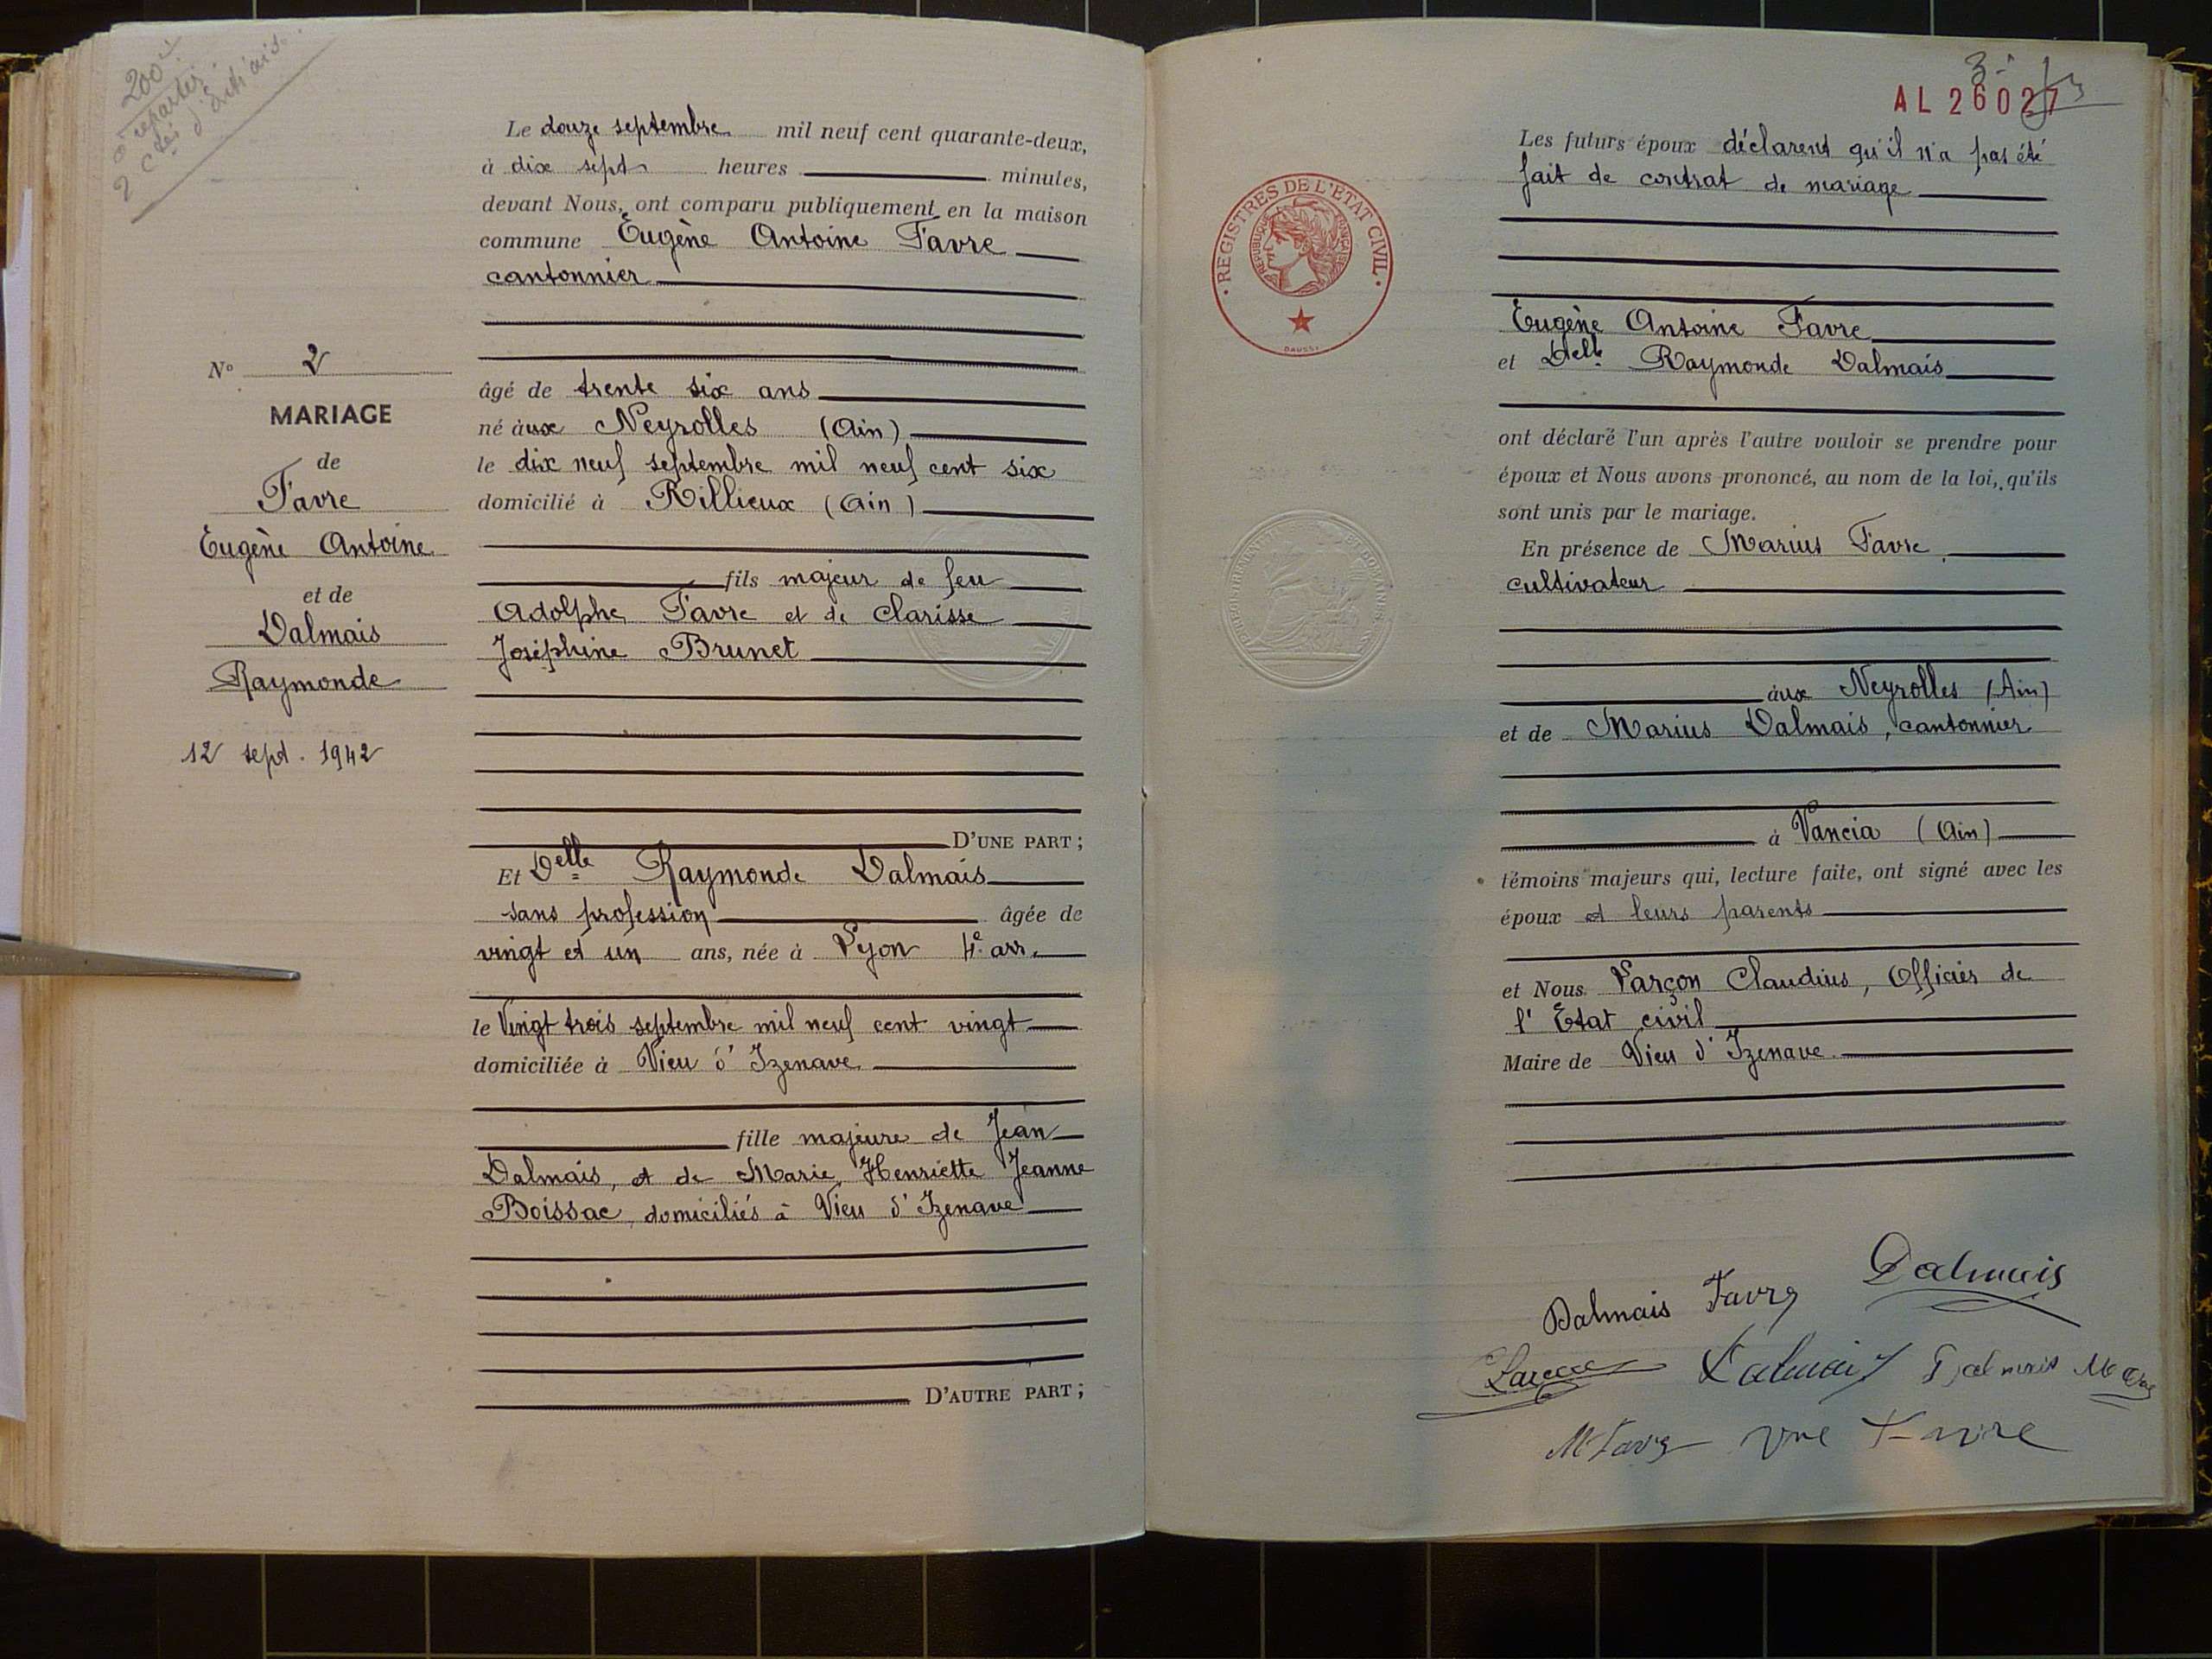 200
à repartir
2 Ctés d'
Le douze septembre mil neuf cent quarante-deux,
à dix sept heures minutes,
devant Nous, ont comparu publiquement en la maison
commune Eugène Antoine Favre
cantonnier
âgé de trente six ans
né àux Neyrolles (Ain)
le dix neuf septembre mil neuf cent six
domicilié à Rillieux (Ain)
fils majeur de feu
Adolphe Favre et de Clarisse
Joséphine Brunet
D'UNE PART ;
Et Delle Raymonde Dalmais
sans profession âgée de
vingt et un ans, née à Lyon 4e arr.
le Vingt trois septembre mil neuf cent vingt
domiciliée à Vieu d'Izenave
fille majeure de Jean
Dalmais, et de Marie Henriette Jeanne
Boissac, domiciliés à Vieu d'Izenave
D'AUTRE PART ;
N° 2
MARIAGE
de
Favre
Eugène Antoine
et de
Dalmais
Raymonde
12 sept. 1942
3
AL 26027
REGISTRES DE L'ETAT CIVIL
REPUBLIQUE FRANÇAISE
DAUSSY
Les futurs époux déclarent qu'il n'a pas été
fait de contrat de mariage
Eugène Antoine Favre
et Delle Raymonde Dalmais
ont déclaré l'un après l'autre vouloir se prendre pour
époux et Nous avons prononcé, au nom de la loi, qu'ils
sont unis par le mariage.
En présence de Marius Favre
cultivateur
àux Neyrolles (Ain)
et de Marius Dalmais, cantonnier
à Vancia (Ain)
témoins majeurs qui, lecture faite, ont signé avec les
époux et leurs parents
et Nous Varçon Claudius, Officier de
l'Etat civil
Maire de Vieu d'Izenave
Dalmais Favre Dalmais
Dalmais Dalmais
M Favre Vve Favre